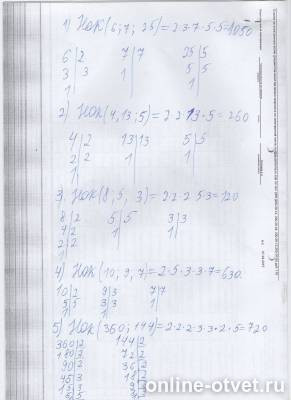 1) НОК(6; 7; 25)=2·3·7·5·5=1050
6|2 7|7 25|5
3|3 1 5|5
1 1
2) НОК(4,13;5)=2·2·13·5=260
4|2 13|13 5|5
2|2 1 1
1
3) НОК(8; 5, 3)=2·2·2·5·3=120
8|2 5|5 3|3
4|2 1 1
2|2
1
4) НОК(10; 9, 7)=2·5·3·3·7=630.
10|2 9|3 7|7
5|5 3|3 1
1 1
5) НОК(360; 144)=2·2·2·3·3·2·5=720
360|2 144|2
180|2 72|2
90|2 36|2
45|3 18|2
15|3 9
5|5
online-otvet.ru